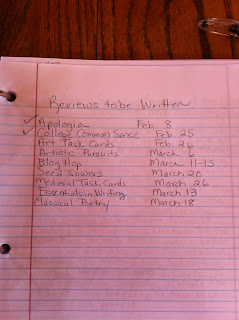 Reviews to be Written
✓ Apologia Feb 8
✓ College Common Sense Feb 25
Art Task Cards Feb 26
Artistic Pursuits March 6
Blog Hop March 11-15
Seed Sowers March 20
Medieval Task Cards March 26
Essentials in Writing March 13
Classical Poetry March 18